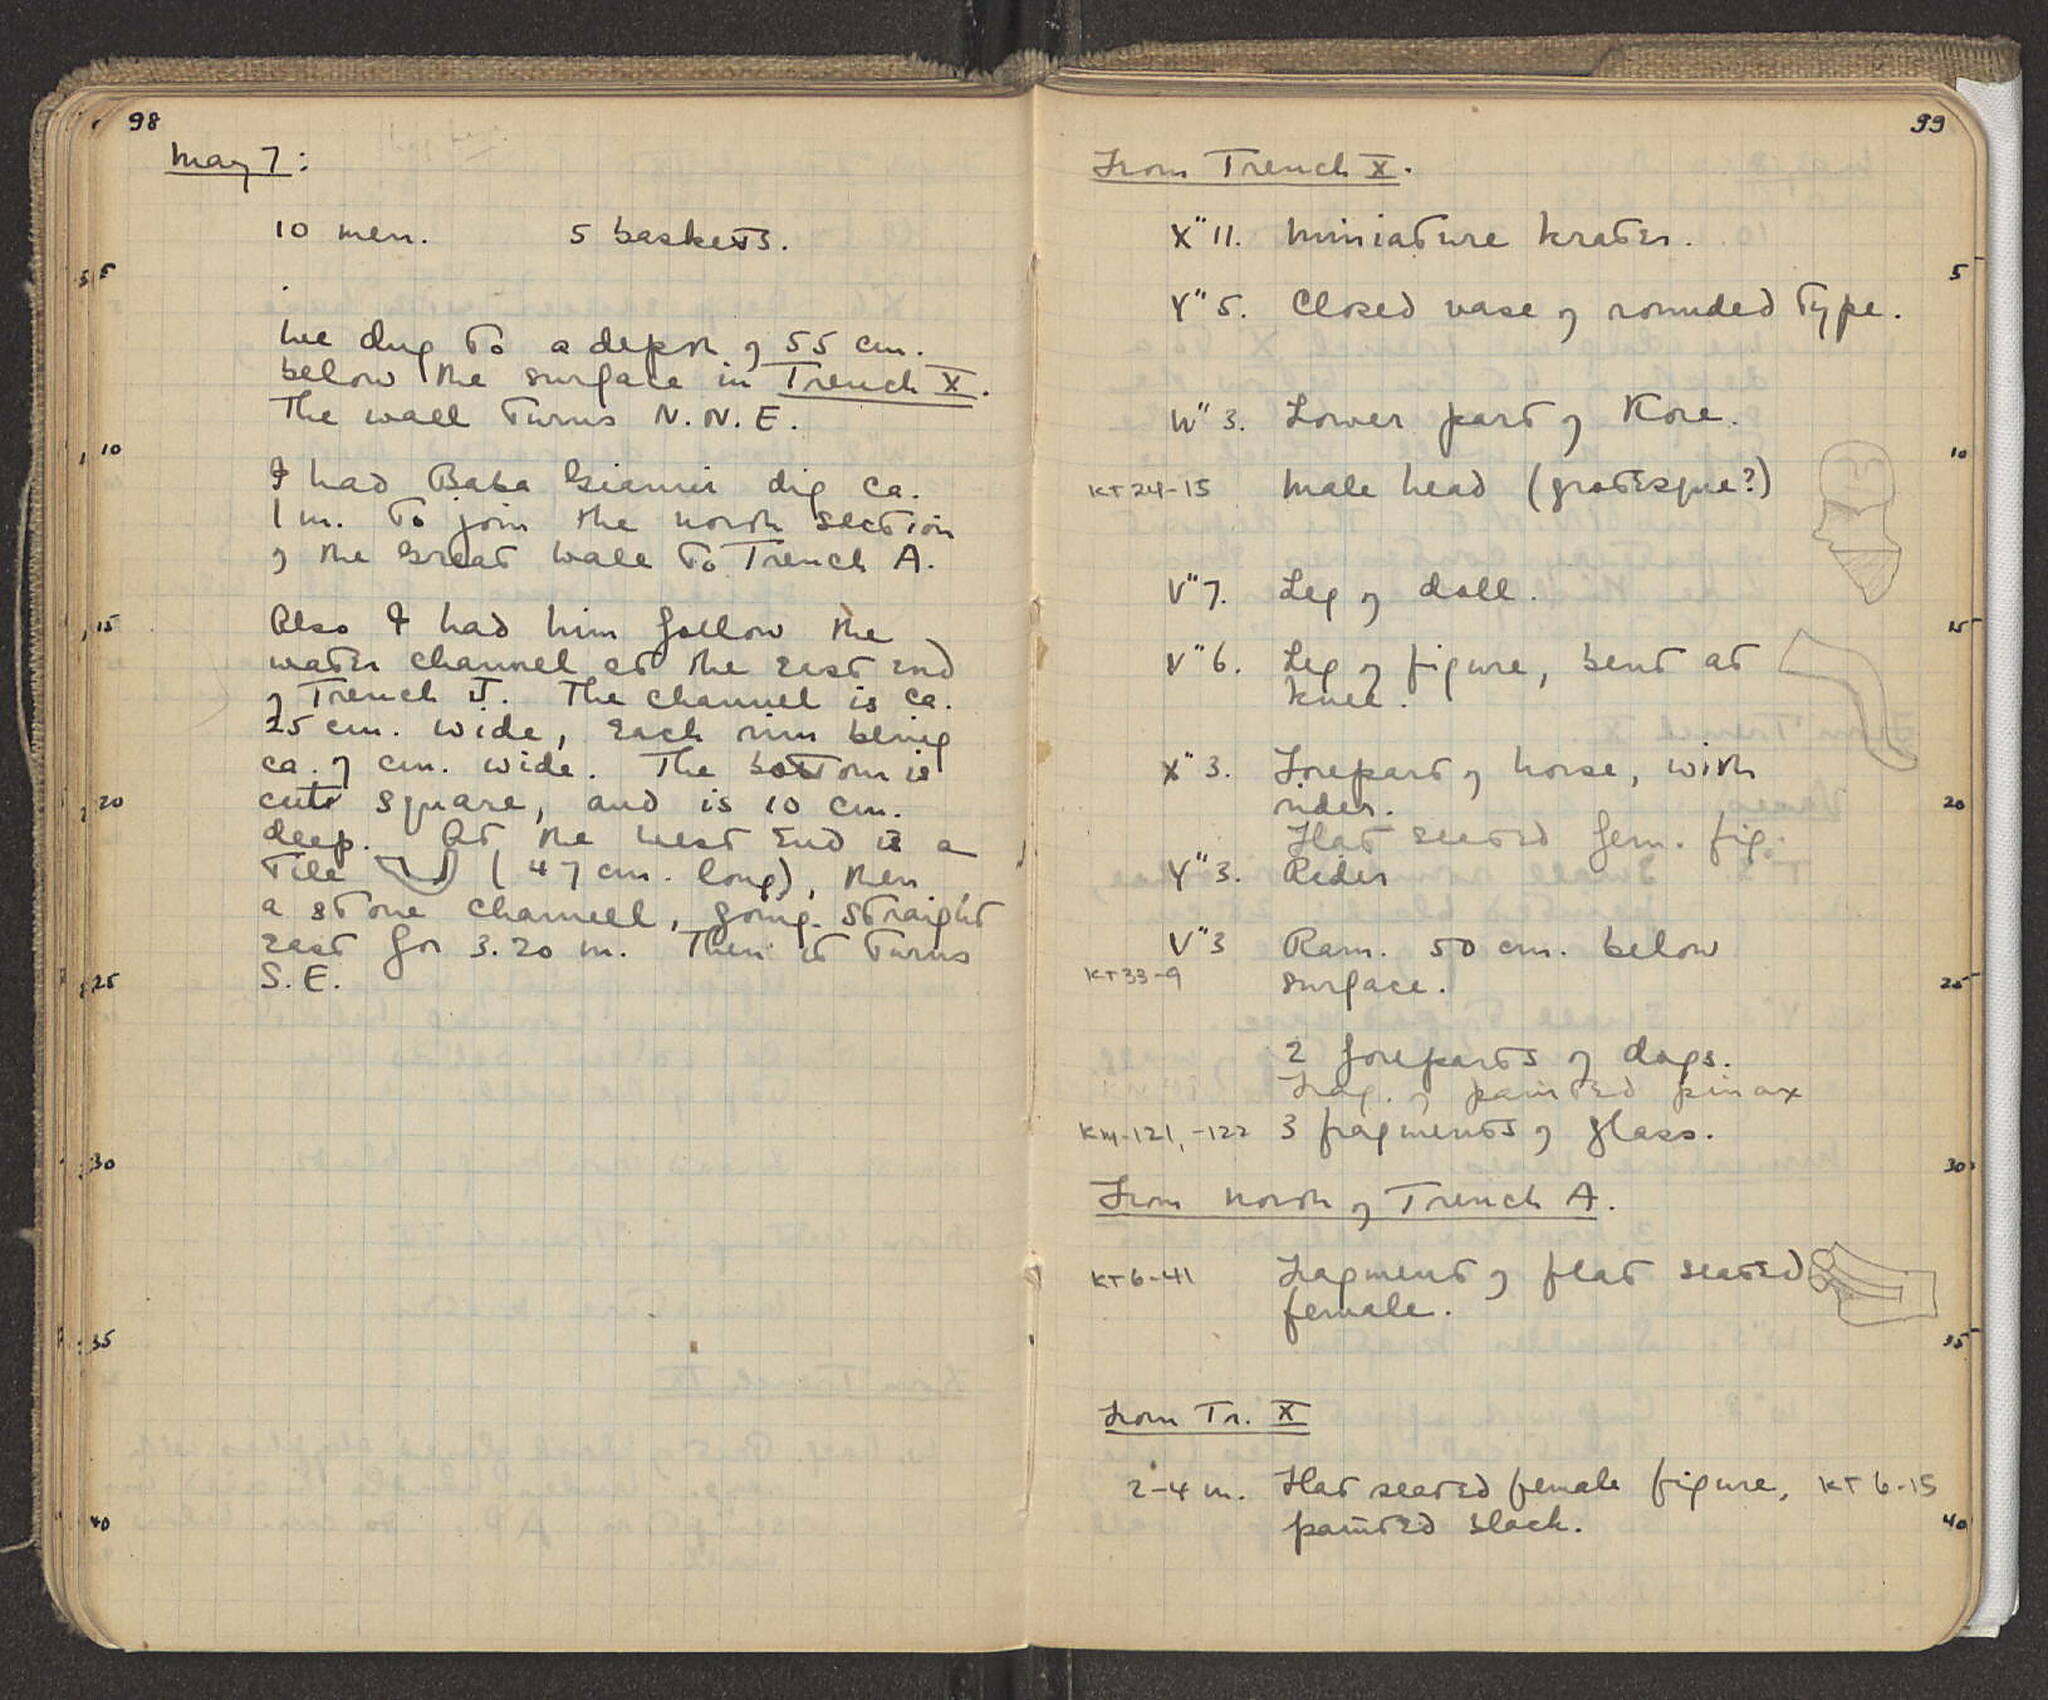 98
May 7:
10 men. 5 baskets.
5
We dug to a depth of 55 cm.
below the surface in Trench X.
The wall turns N.N.E.
10
I had Baba Gianni dig ca.
1 m. to join the north section
of the Great Wall to Trench A.
15
Also I had him follow the
water channel at the east end
of Trench V. The channel is ca.
25 cm. wide, each rim being
ca. 7 cm. wide. The bottom is
20
cut square, and is 10 cm.
deep. At the west end is a
tile (47 cm. long), then
a stone channel, going straight
east for 3.20 m. Then it turns
25
S.E.
30
35
40
99
From Trench X.
X"11. Miniature krater.
5
Y"5. Closed vase of rounded type.
W"3. Lower part of Kore.
10
KT24-15 Male head (grotesque?)
V"7. Leg of doll.
15
V"6. Leg of figure, bent at
knee.
X"3. Forepart of horse, with
20
rider.
Flat seated fem. fig.
Y"3. Rider
V"3 Ram. 50 cm. below
KT33-9 surface.
25
2 foreparts of dogs.
Frag. of painted pinax
KM-121, -122 3 fragments of glass.
30
From North of Trench A.
KT6-41 Fragment of flat seated
female.
35
From Tr. X
2-4 m. Flat seated female figure, KT6-15
painted black.
40